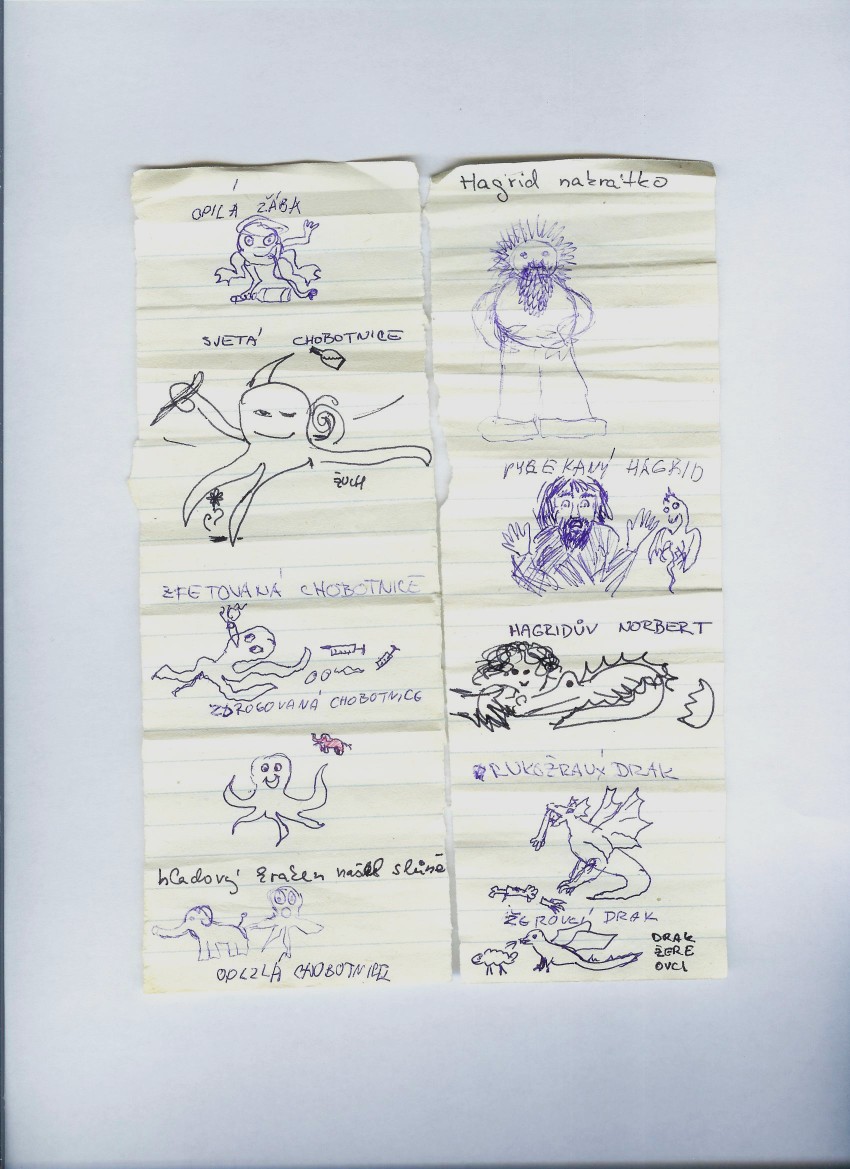 OPILÁ ŽÁBA
SVETÁ CHOBOTNICE
ŽUCH
ZFETOVANÁ CHOBOTNICE
ZDROGOVANÁ CHOBOTNICE
hladový našel
CHOBOTNICE
Hagrid nakrátko
VYLEKANÝ HAGRID
HAGRIDŮV NORBERT
RUKOŽRAVÝ DRAK
DRAK
DRAK
ŽERE
OVCI